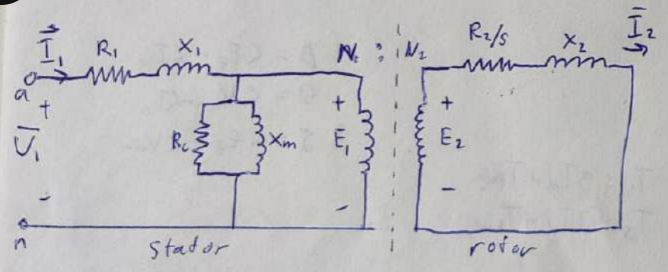 I₁ R₁ X₁ N₁ : N₂ R₂/s X₂ I₂
a
+ + +
U₁ Rc Xm E₁ E₂
- - -
n
stator rotor